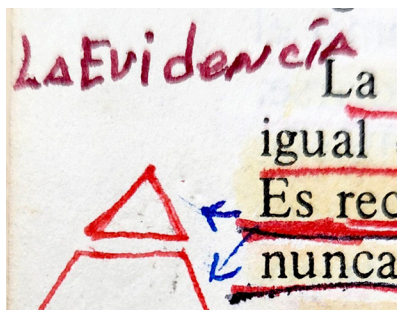 La Evidencía
La
igual
Es rec
nunca